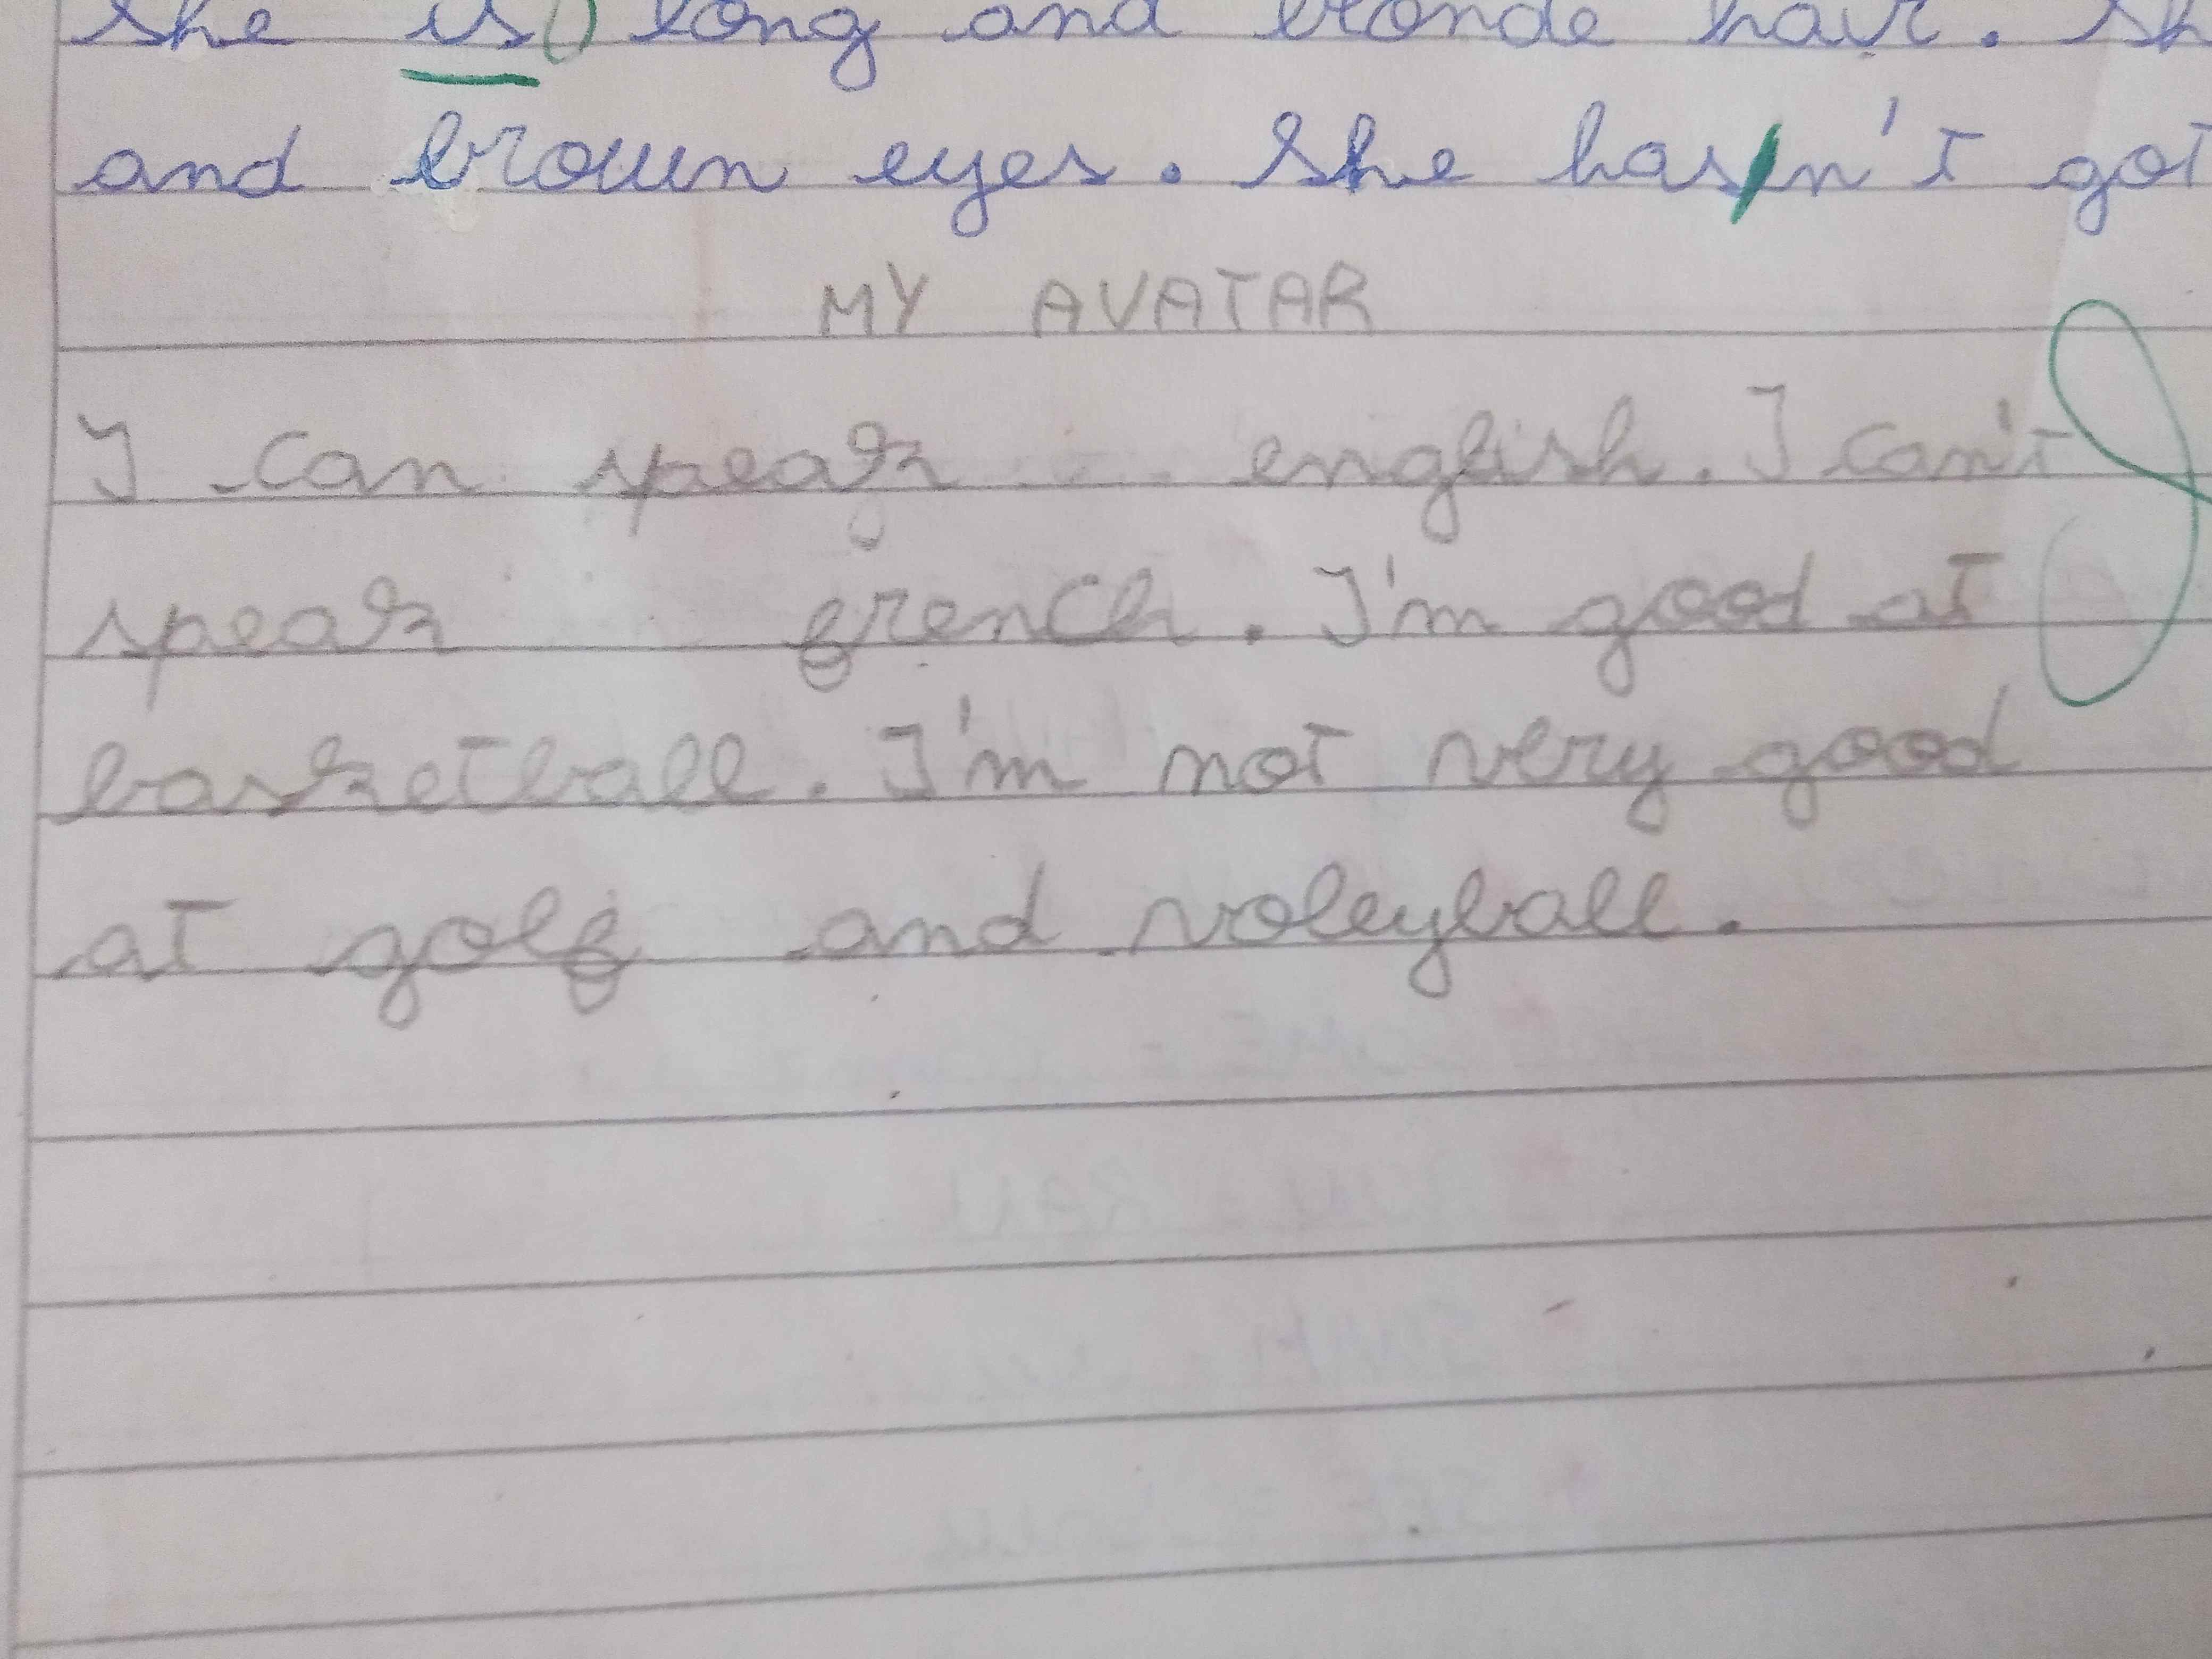 She is long and blonde hair. Sh
and brown eyes. She hasn't got
MY AVATAR
I can speak english. I can't
speak french. I'm good at
basketball. I'm not very good
at golf and voleyball.